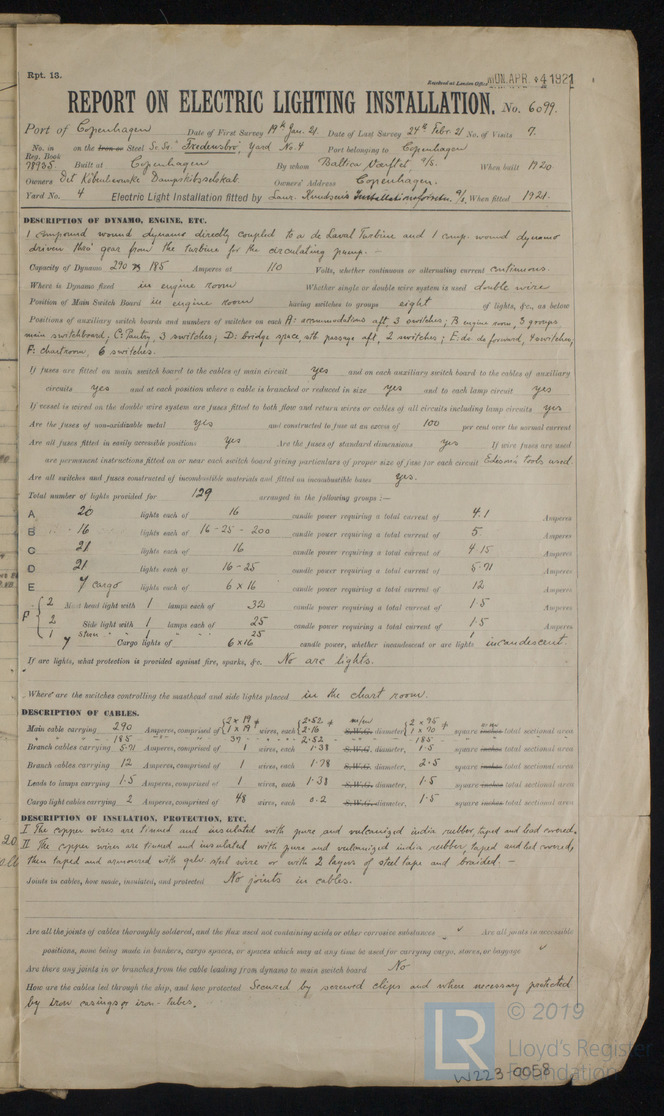 Rpt. 13.
Received at London Office MON. APR. 4 1921
REPORT ON ELECTRIC LIGHTING INSTALLATION. No. 6099.
Port of Copenhagen Date of First Survey 19th Jan. 21. Date of Last Survey 24th Febr. 21 No. of Visits 7.
No. in Reg. Book 78985. on the Iron or Steel Sc. Sr. "Fredensbro" Yard No. 4 Port belonging to Copenhagen
Built at Copenhagen By whom Baltica Værftet A/S. When built 1920
Owners Det Köbenhavnske Dampskibsselskab. Owners' Address Copenhagen.
Yard No. 4 Electric Light Installation fitted by Laur. Knudsens When fitted 1921.
DESCRIPTION OF DYNAMO, ENGINE, ETC.
1 compound wound dynamo directly coupled to a de Laval Turbine and 1 comp. wound dynamo
driven thro' gear from the turbine for the circulating pump. -
Capacity of Dynamo 290 & 185 Amperes at 110 Volts, whether continuous or alternating current continuous.
Where is Dynamo fixed in engine room Whether single or double wire system is used double wire
Position of Main Switch Board in engine room having switches to groups eight of lights, &c., as below
Positions of auxiliary switch boards and numbers of switches on each A: accommodations aft, 3 switches; B engine room, 3 groups
main switchboard; C: Pantry, 3 switches; D: bridge space, stb passage aft, 2 switches; E: do. do forward, 4 switches,
F: chartroom, 6 switches.
If fuses are fitted on main switch board to the cables of main circuit yes and on each auxiliary switch board to the cables of auxiliary
circuits yes and at each position where a cable is branched or reduced in size yes and to each lamp circuit yes
If vessel is wired on the double wire system are fuses fitted to both flow and return wires or cables of all circuits including lamp circuits yes
Are the fuses of non-oxidizable metal yes and constructed to fuse at an excess of 100 per cent over the normal current
Are all fuses fitted in easily accessible positions Yes Are the fuses of standard dimensions yes If wire fuses are used
are permanent instructions fitted on or near each switch board giving particulars of proper size of fuse for each circuit Edison's tools used.
Are all switches and fuses constructed of incombustible materials and fitted on incombustible bases yes.
Total number of lights provided for 129 arranged in the following groups :—
A 20 lights each of 16 candle power requiring a total current of 4.1 Amperes
B 16 lights each of 16-25-200 candle power requiring a total current of 5 Amperes
C 21 lights each of 16 candle power requiring a total current of 4.15 Amperes
D 21 lights each of 16-25 candle power requiring a total current of 5.71 Amperes
E 7 cargo lights each of 6 x 16 candle power requiring a total current of 12 Amperes
F 2 Mast head light with 1 lamps each of 32 candle power requiring a total current of 1.5 Amperes
2 Side light with 1 lamps each of 25 candle power requiring a total current of 1.5 Amperes
1 stern " 1 " " " 25 1
7 Cargo lights of 6x16 candle power, whether incandescent or arc lights incandescent.
If arc lights, what protection is provided against fire, sparks, &c. No arc lights.
Where are the switches controlling the masthead and side lights placed in the chart room.
DESCRIPTION OF CABLES.
Main cable carrying 290 Amperes, comprised of 2 x 19 + 1 x 19 wires, each 2.52 + 2.16 m/m S.W.G. diameter, 2 x 95 + 1 x 70 square m/m inches total sectional area
" " " 185 " " " 37 " " " 2.52 " " " 185 " " "
Branch cables carrying 5.71 Amperes, comprised of 1 wires, each 1.38 S.W.G. diameter, 1.5 square inches total sectional area
Branch cables carrying 12 Amperes, comprised of 1 wires, each 1.78 S.W.G. diameter, 2.5 square inches total sectional area
Leads to lamps carrying 1.5 Amperes, comprised of 1 wires, each 1.38 S.W.G. diameter, 1.5 square inches total sectional area
Cargo light cables carrying 2 Amperes, comprised of 48 wires, each 0.2 S.W.G. diameter, 1.5 square inches total sectional area
DESCRIPTION OF INSULATION, PROTECTION, ETC.
I The copper wires are tinned and insulated with pure and vulcanized india rubber, taped and lead covered.
II. The copper wires are tinned and insulated with pure and vulcanized india rubber, taped and led covered,
then taped and armoured with galv. steel wire or with 2 layers of steel tape and braided. -
Joints in cables, how made, insulated, and protected No joints in cables.
Are all the joints of cables thoroughly soldered, and the flux used not containing acids or other corrosive substances ✓ Are all joints in accessible
positions, none being made in bunkers, cargo spaces, or spaces which may at any time be used for carrying cargo, stores, or baggage ✓
Are there any joints in or branches from the cable leading from dynamo to main switch board No
How are the cables led through the ship, and how protected Secured by screwed clips and where necessary protected
by iron casings or iron-tubes.
© 2019
Lloyd's Register
Foundation
W223-0058